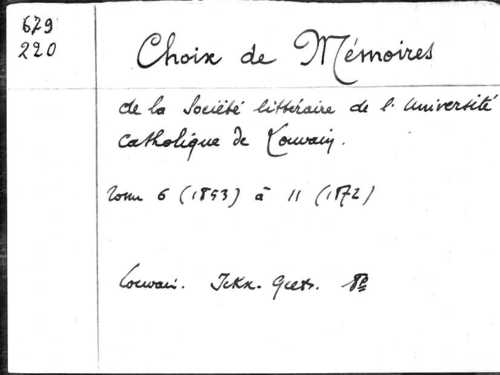 679
220
Choix de Mémoires
de la Société littéraire de l'Université
Catholique de Louvain.
Tome 6 (1853) à 11 (1872)
Louvain.